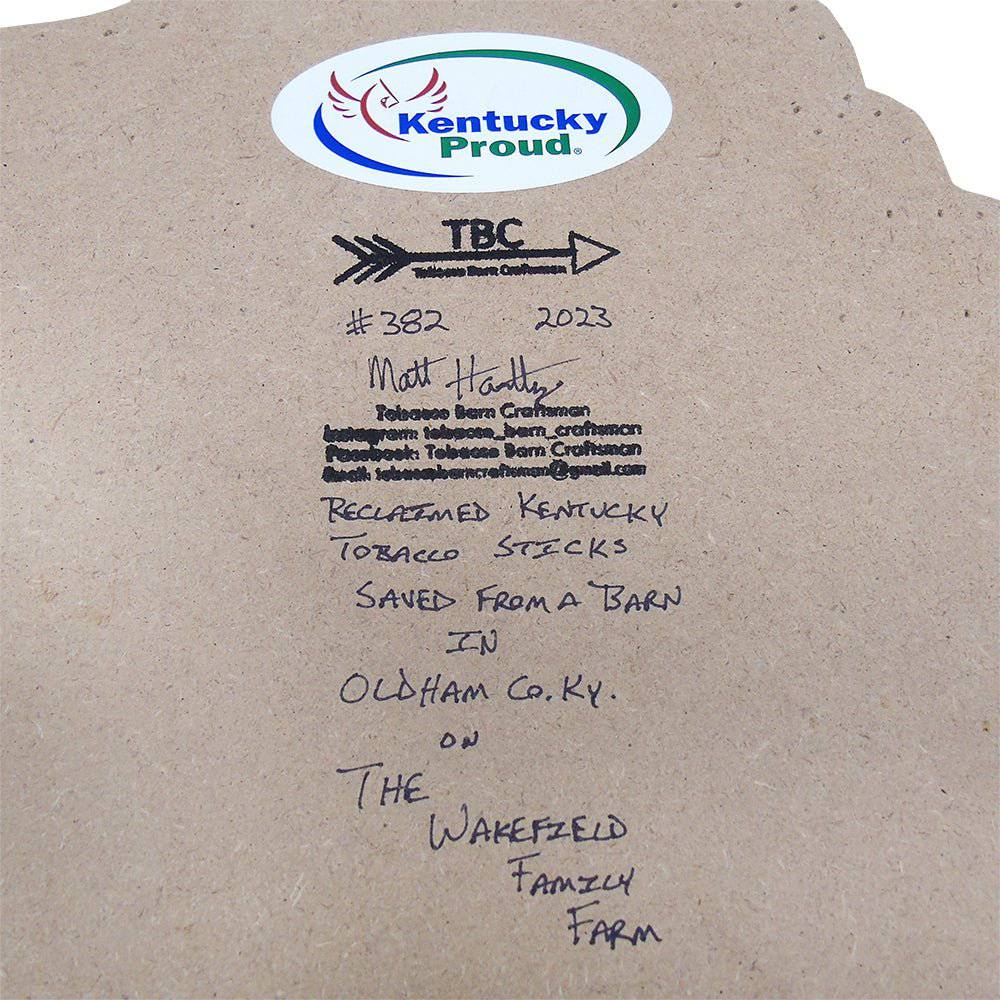 Kentucky
Proud®
TBC
Tobacco Barn Craftsman
#382 2023
Matt
Tobacco Barn Craftsman
Instagram: tobacco_barn_craftsman
Facebook: Tobacco Barn Craftsman
Email: tobaccobarncraftsman@gmail.com
RECLAIMED KENTUCKY
TOBACCO STICKS
SAVED FROM A BARN
IN
OLDHAM CO. KY.
ON
THE
WAKEFIELD
FAMILY
FARM